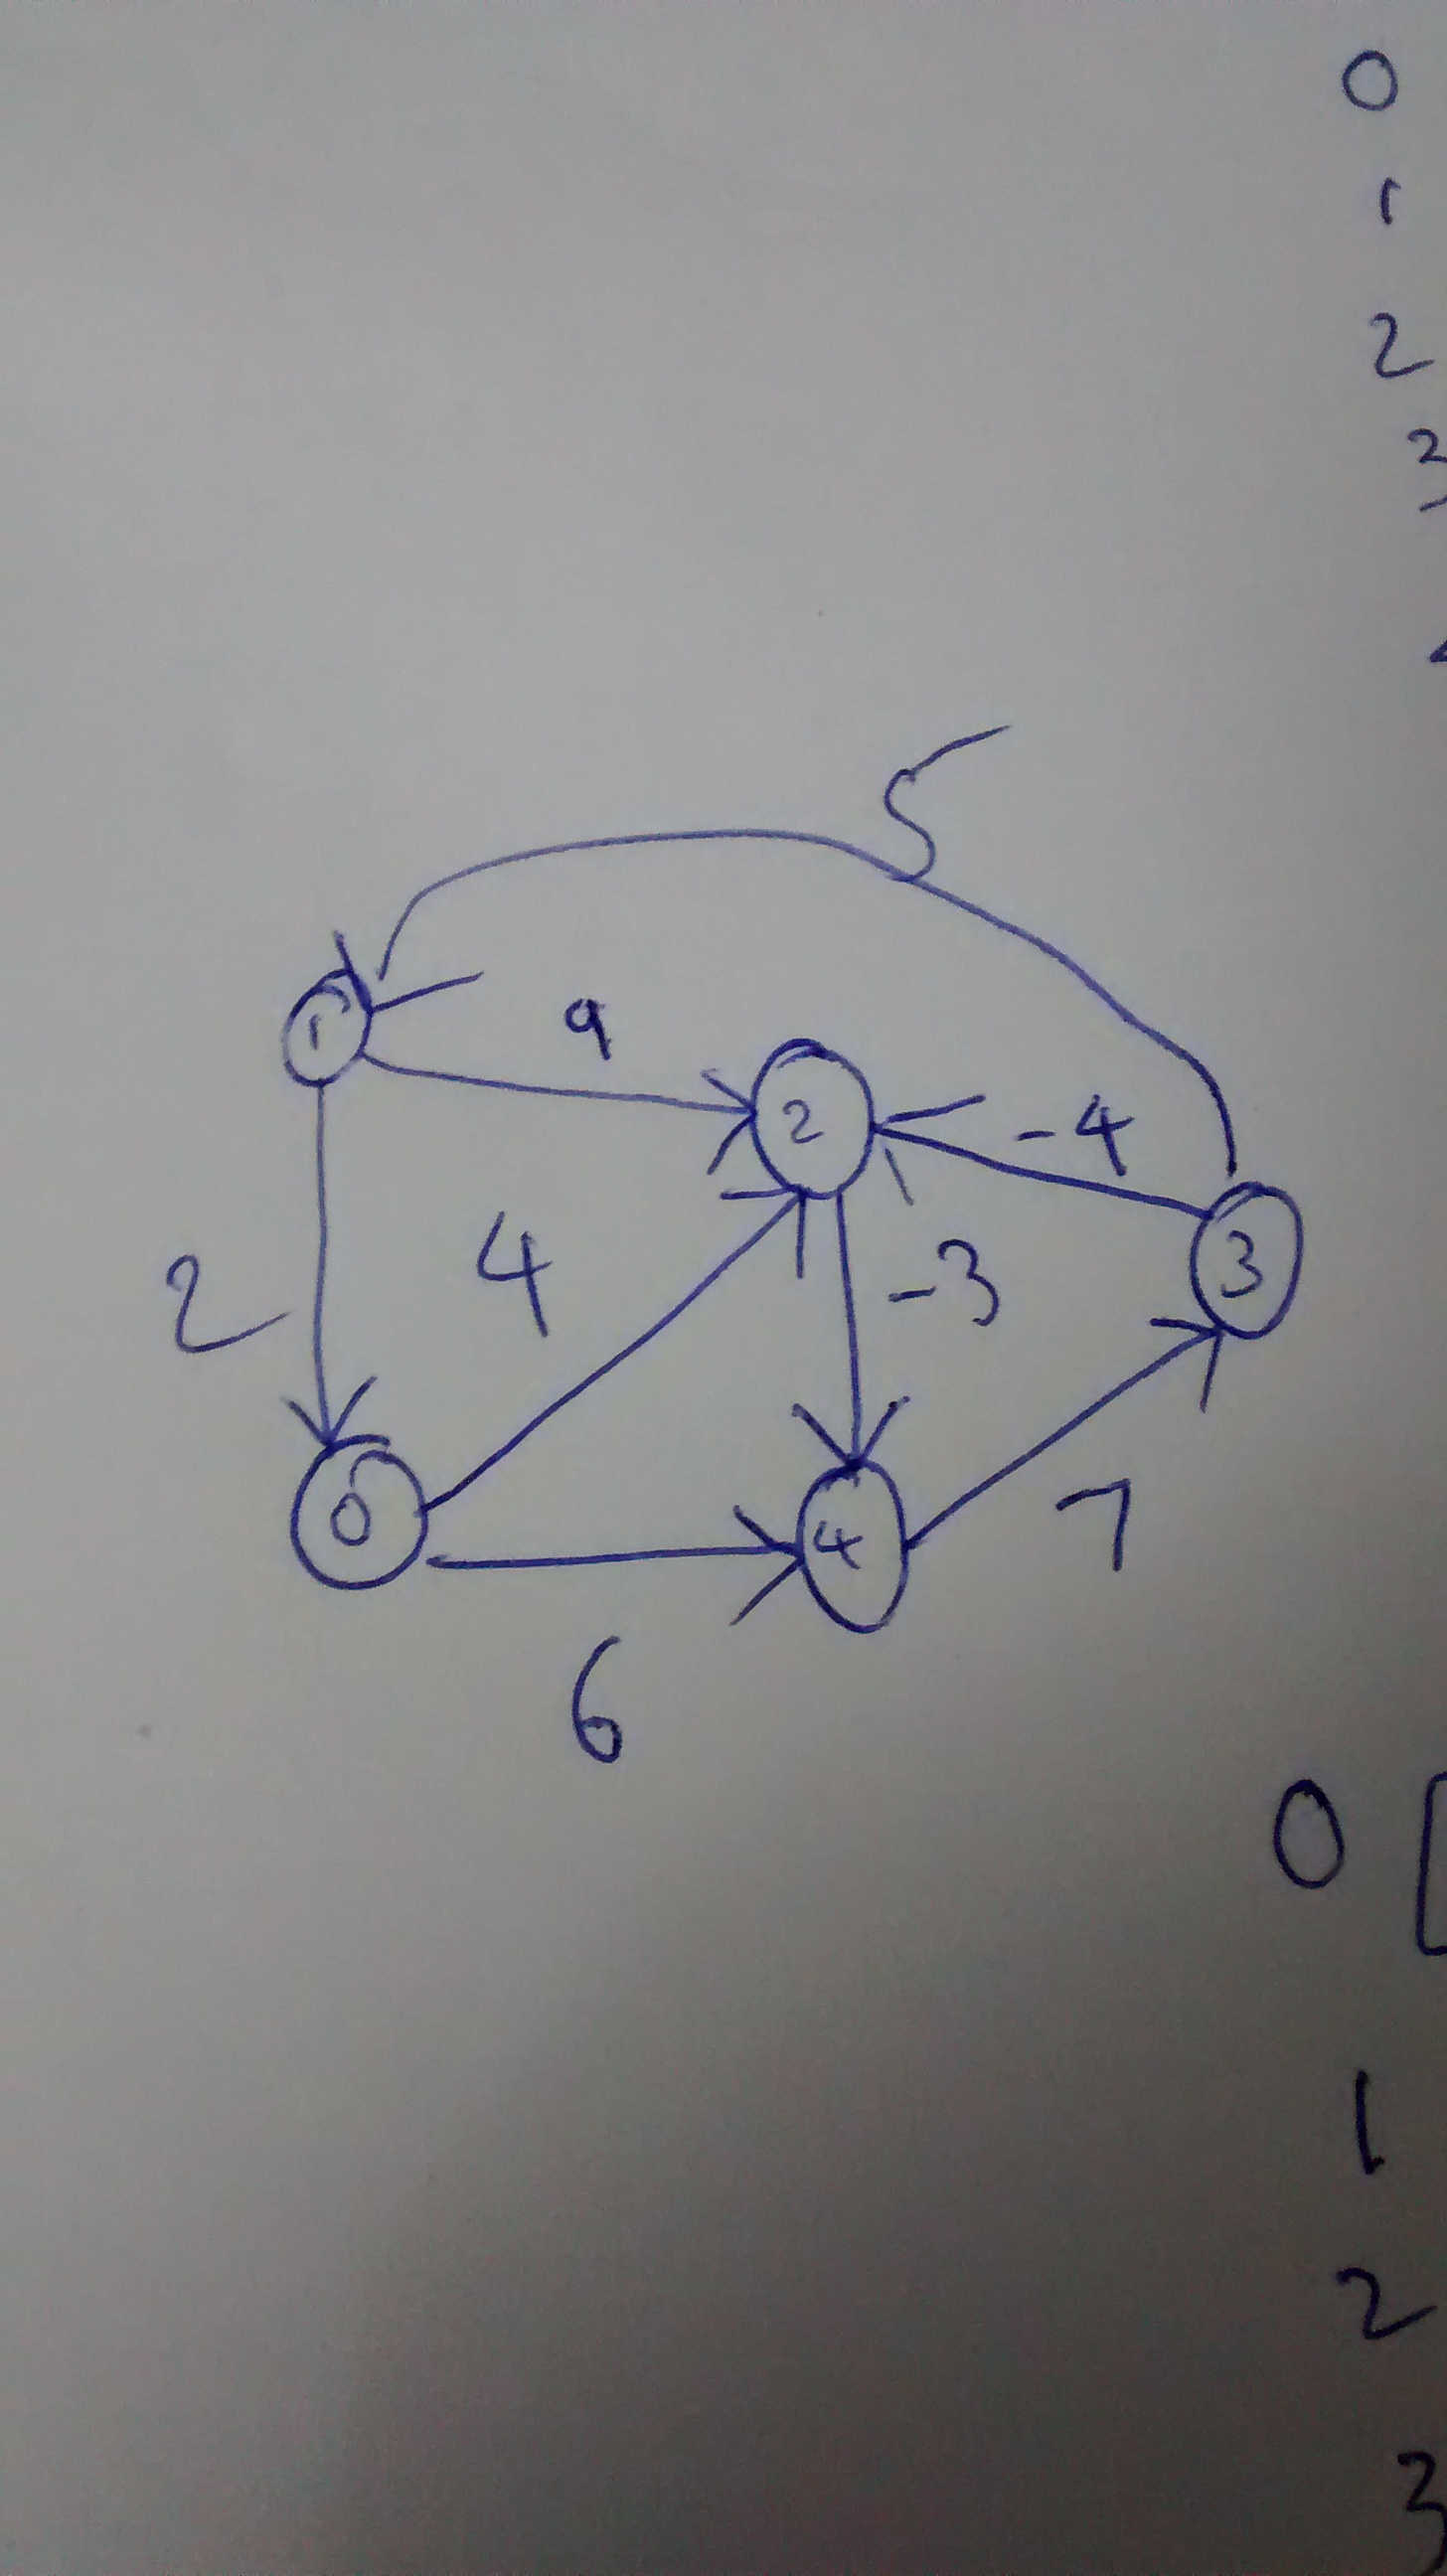 0
1
2
3
5
9
1
2
-4
4
-3
3
2
0
4
7
6
0
1
2
3